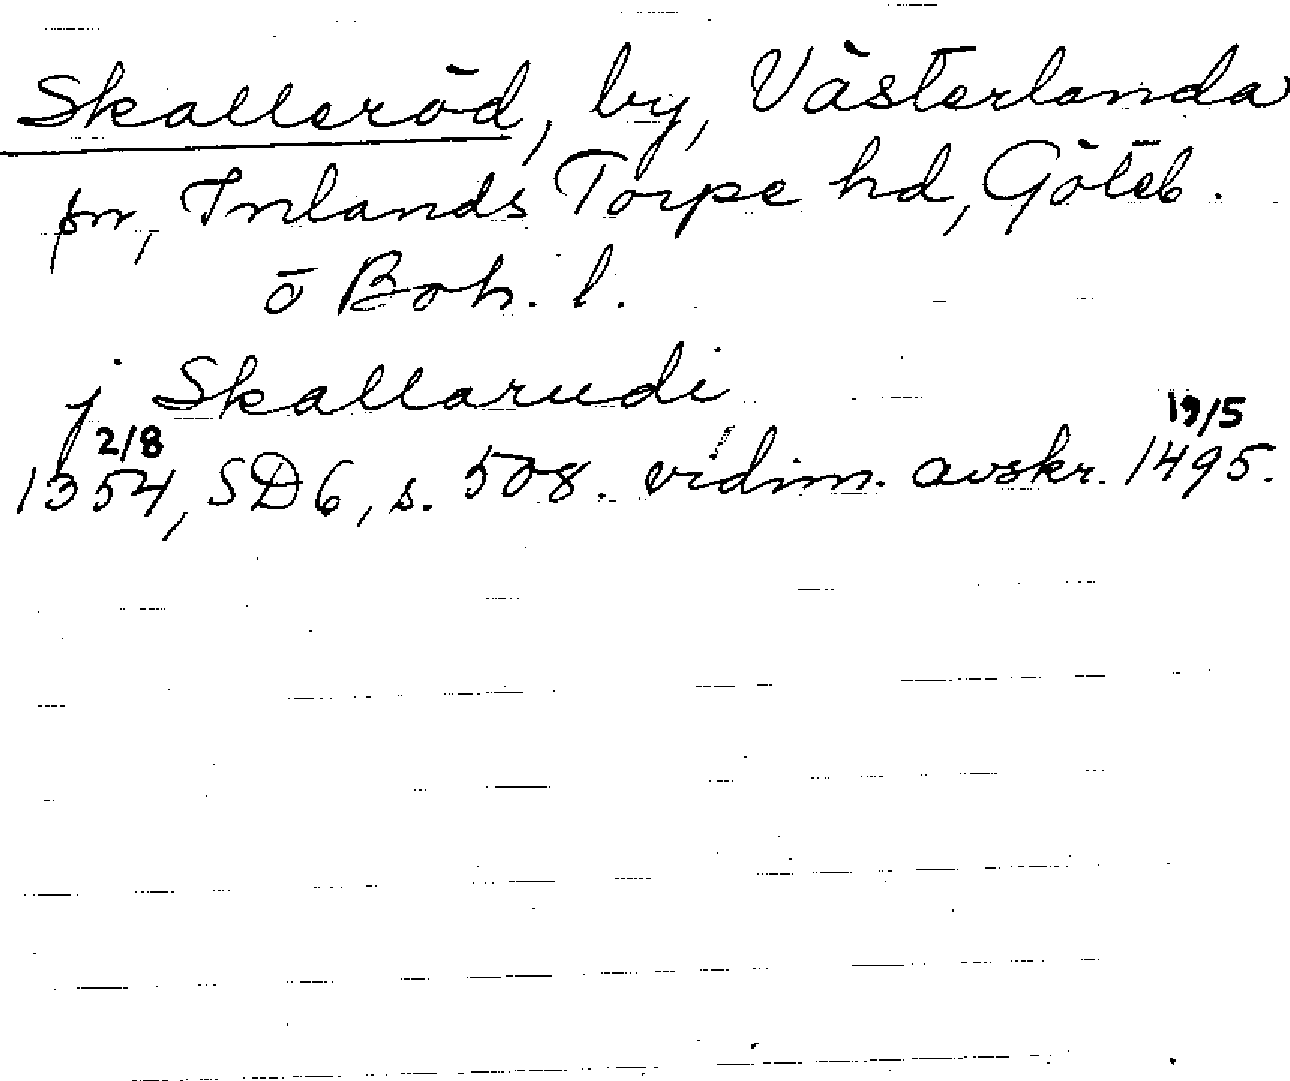 Skalleröd, by, Västerlanda
sn, Inlands Torpe hd, Göteb.
o Boh. l.
j Skallarudi
2/8 19/5
1354, SD 6, s. 508. vidim. avskr. 1495.